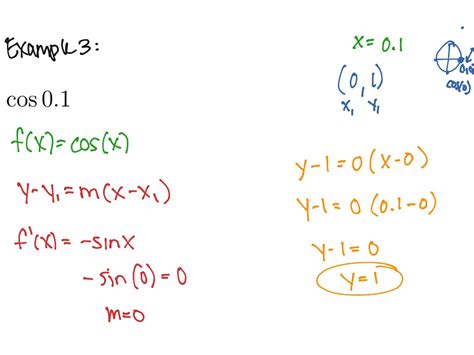 Example 3:
cos 0.1
f(x) = cos(x)
y-y₁ = m(x-x₁)
f'(x) = -sinx
-sin(0) = 0
m=0
x = 0.1
(0, 1)
x₁ y₁
cos(0)
y-1 = 0(x-0)
y-1 = 0(0.1-0)
y-1 = 0
y=1